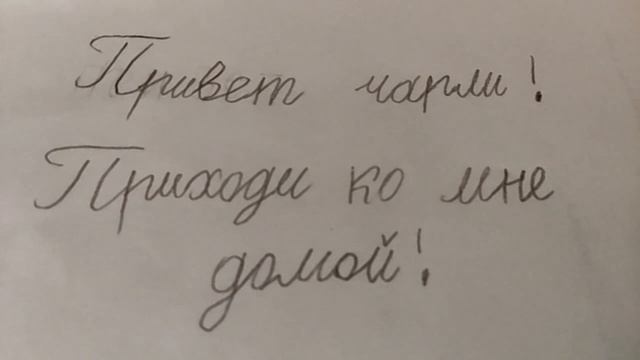 Привет чарли!
Приходи ко мне
домой!